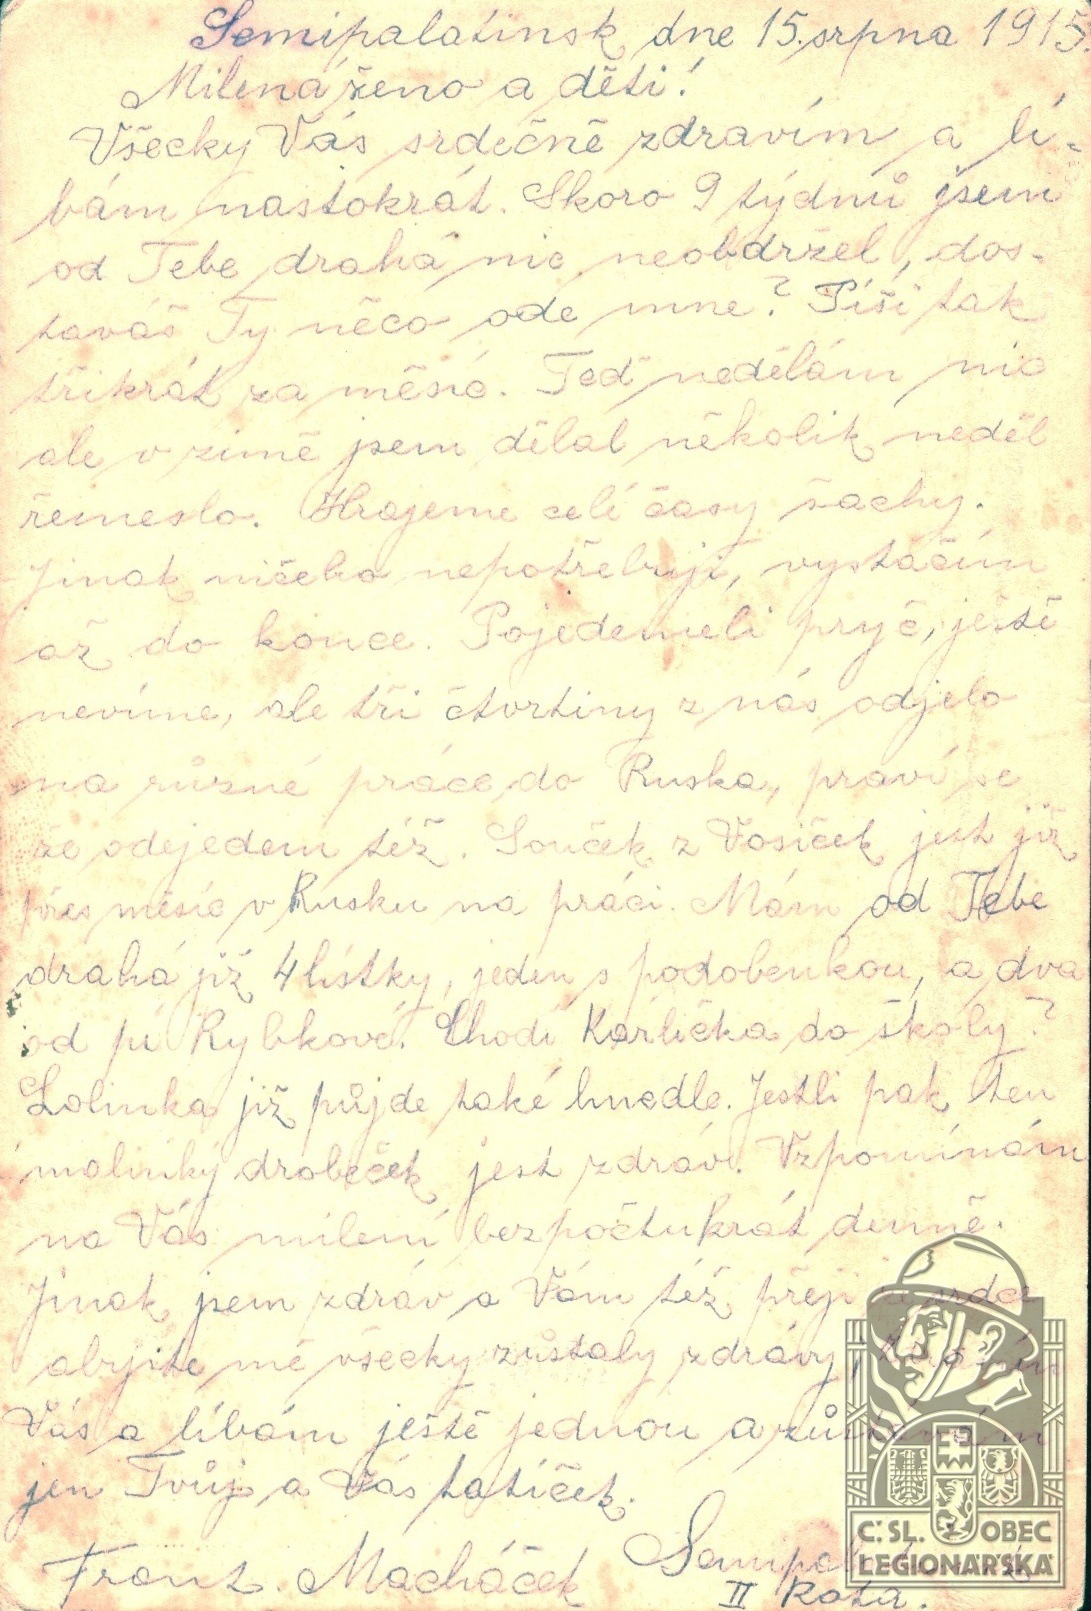 Semipalatinsk dne 15. srpna 1915.
Milená ženo a děti!
Všecky Vás srdečně zdravím a lí-
bám nastokrát. Skoro 9 týdnů jsem
od Tebe drahá nic neobdržel, dos-
taváš Ty něco ode mne? Píši tak
třikrát za měsíc. Teď nedělám nic
ale v zimě jsem dělal několik neděl
řemeslo. Hrajeme celí časy šachy.
Jinak ničeho nepotřebuji, vystáčím
až do konce. Pojedemeli pryč, ještě
nevíme, ale tři čtvrtiny z nás odjelo
na různé práce do Ruska, praví se
že odejedem též. Souček z Vosiček jest již
přes měsíc v Rusku na práci. Mám od Tebe
drahá již 4 lístky, jeden s podobenkou, a dva
od pí Rybkové. Chodí Karlička do školy?
Lolinka již půjde také hnedle. Jestli pak ten
malinký drobeček jest zdráv. Vzpomínám
na Vás milení bezpočtukrát denně.
Jinak jsem zdráv a Vám též přeji ze srdce
abyjste mě všecky zůstaly zdrávy,
Vás a líbám ještě jednou a zůstávám
jen Tvůj a Vás tatíček.
Franz. Macháček
II Rota.
Č.SL. OBEC
LEGIONÁŘSKÁ